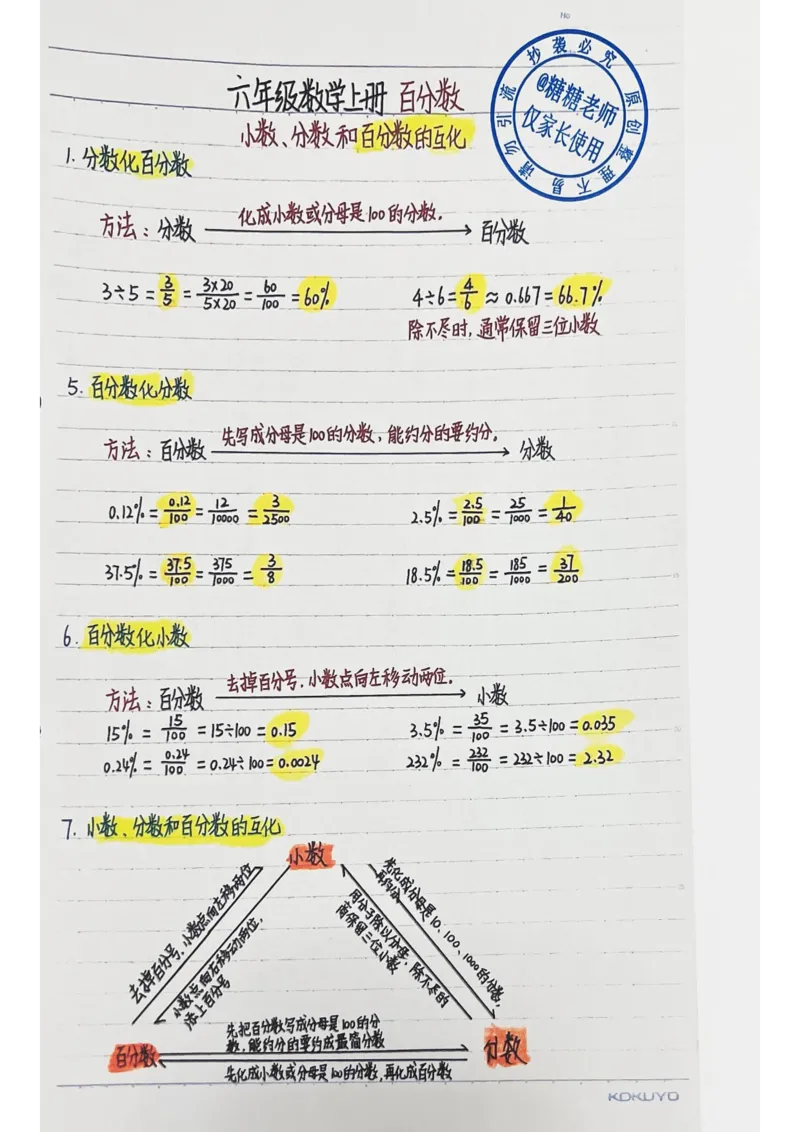 No
六年级数学上册 百分数
小数、分数和百分数的互化
抄袭必究 原创整理不易请勿引流
@糖糖老师
仅家长使用
1. 分数化百分数
方法：分数 化成小数或分母是100的分数. 百分数
3÷5 = 3/5 = 3×20/5×20 = 60/100 = 60%
4÷6 = 4/6 ≈ 0.667 = 66.7%
除不尽时, 通常保留三位小数
5. 百分数化分数
方法：百分数 先写成分母是100的分数, 能约分的要约分. 分数
0.12% = 0.12/100 = 12/10000 = 3/2500
2.5% = 2.5/100 = 25/1000 = 1/40
37.5% = 37.5/100 = 375/1000 = 3/8
18.5% = 18.5/100 = 185/1000 = 37/200
6. 百分数化小数
方法：百分数 去掉百分号, 小数点向左移动两位. 小数
15% = 15/100 = 15÷100 = 0.15
3.5% = 35/100 = 3.5÷100 = 0.035
0.24% = 0.24/100 = 0.24÷100 = 0.0024
232% = 232/100 = 232÷100 = 2.32
7. 小数、分数和百分数的互化
小数
去掉百分号, 小数点向左移两位
小数点向右移动两位,
添上百分号
先化成分母是10、100、1000的分数,
再约分
用分子除以分母, 除不尽的
商保留三位小数
百分数
先把百分数写成分母是100的分
数, 能约分的要约成最简分数
先化成小数或分母是100的分数, 再化成百分数
分数
KOKUYO